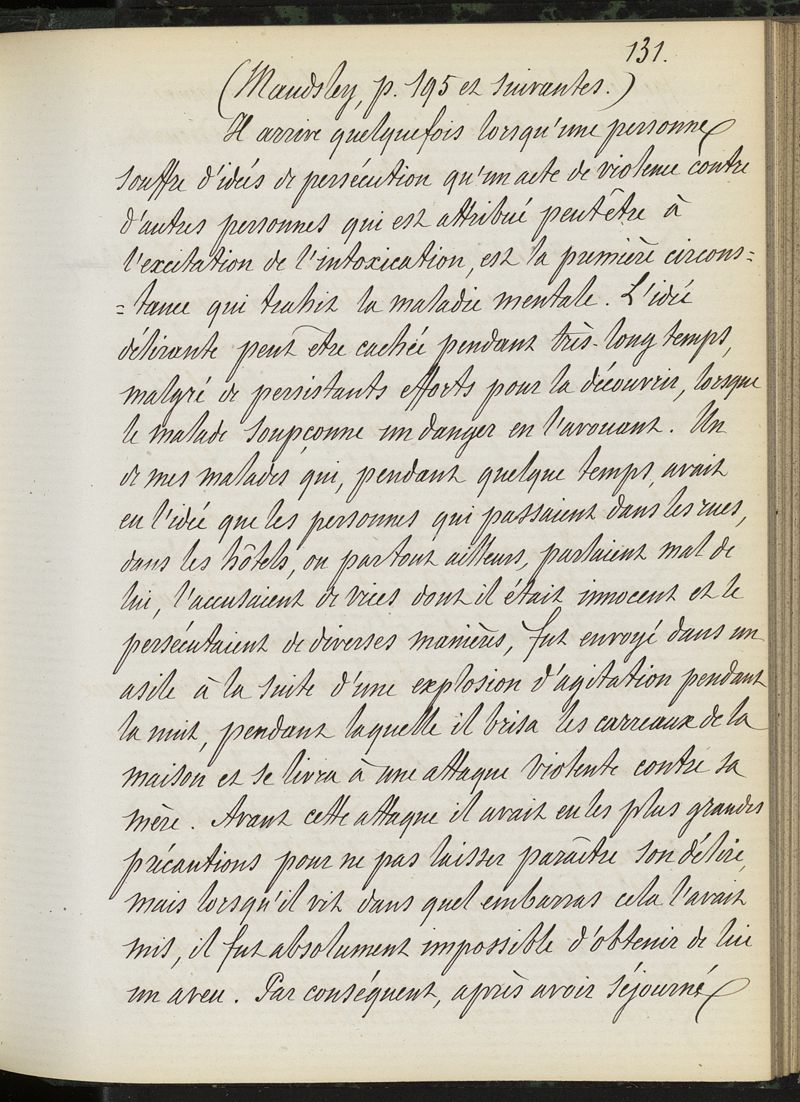 131.
(Maudsley, p. 195 et suivantes.)
Il arrive quelquefois lorsqu'une personne
souffre d'idées de persécution qu'un acte de violence contre
d'autres personnes qui est attribué peut être à
l'excitation de l'intoxication, est la première circons=
=tance qui trahit la maladie mentale. L'idée
délirante peut être cachée pendant très-long temps,
malgré de persistants efforts pour la découvrir, lorsque
le malade soupçonne un danger en l'avouant. Un
de mes malades qui, pendant quelque temps, avait
eu l'idée que les personnes qui passaient dans les rues,
dans les hôtels, ou partout ailleurs, parlaient mal de
lui, l'accusaient de vices dont il était innocent et le
persécutaient de diverses manières, fut envoyé dans un
asile à la suite d'une explosion d'agitation pendant
la nuit, pendant laquelle il brisa les carreaux de la
maison et se livra à une attaque violente contre sa
mère. Avant cette attaque il avait eu les plus grandes
précautions pour ne pas laisser paraître son délire,
mais lorsqu'il vit dans quel embarras cela l'avait
mis, il fut absolument impossible d'obtenir de lui
un aveu. Par conséquent, après avoir séjourné